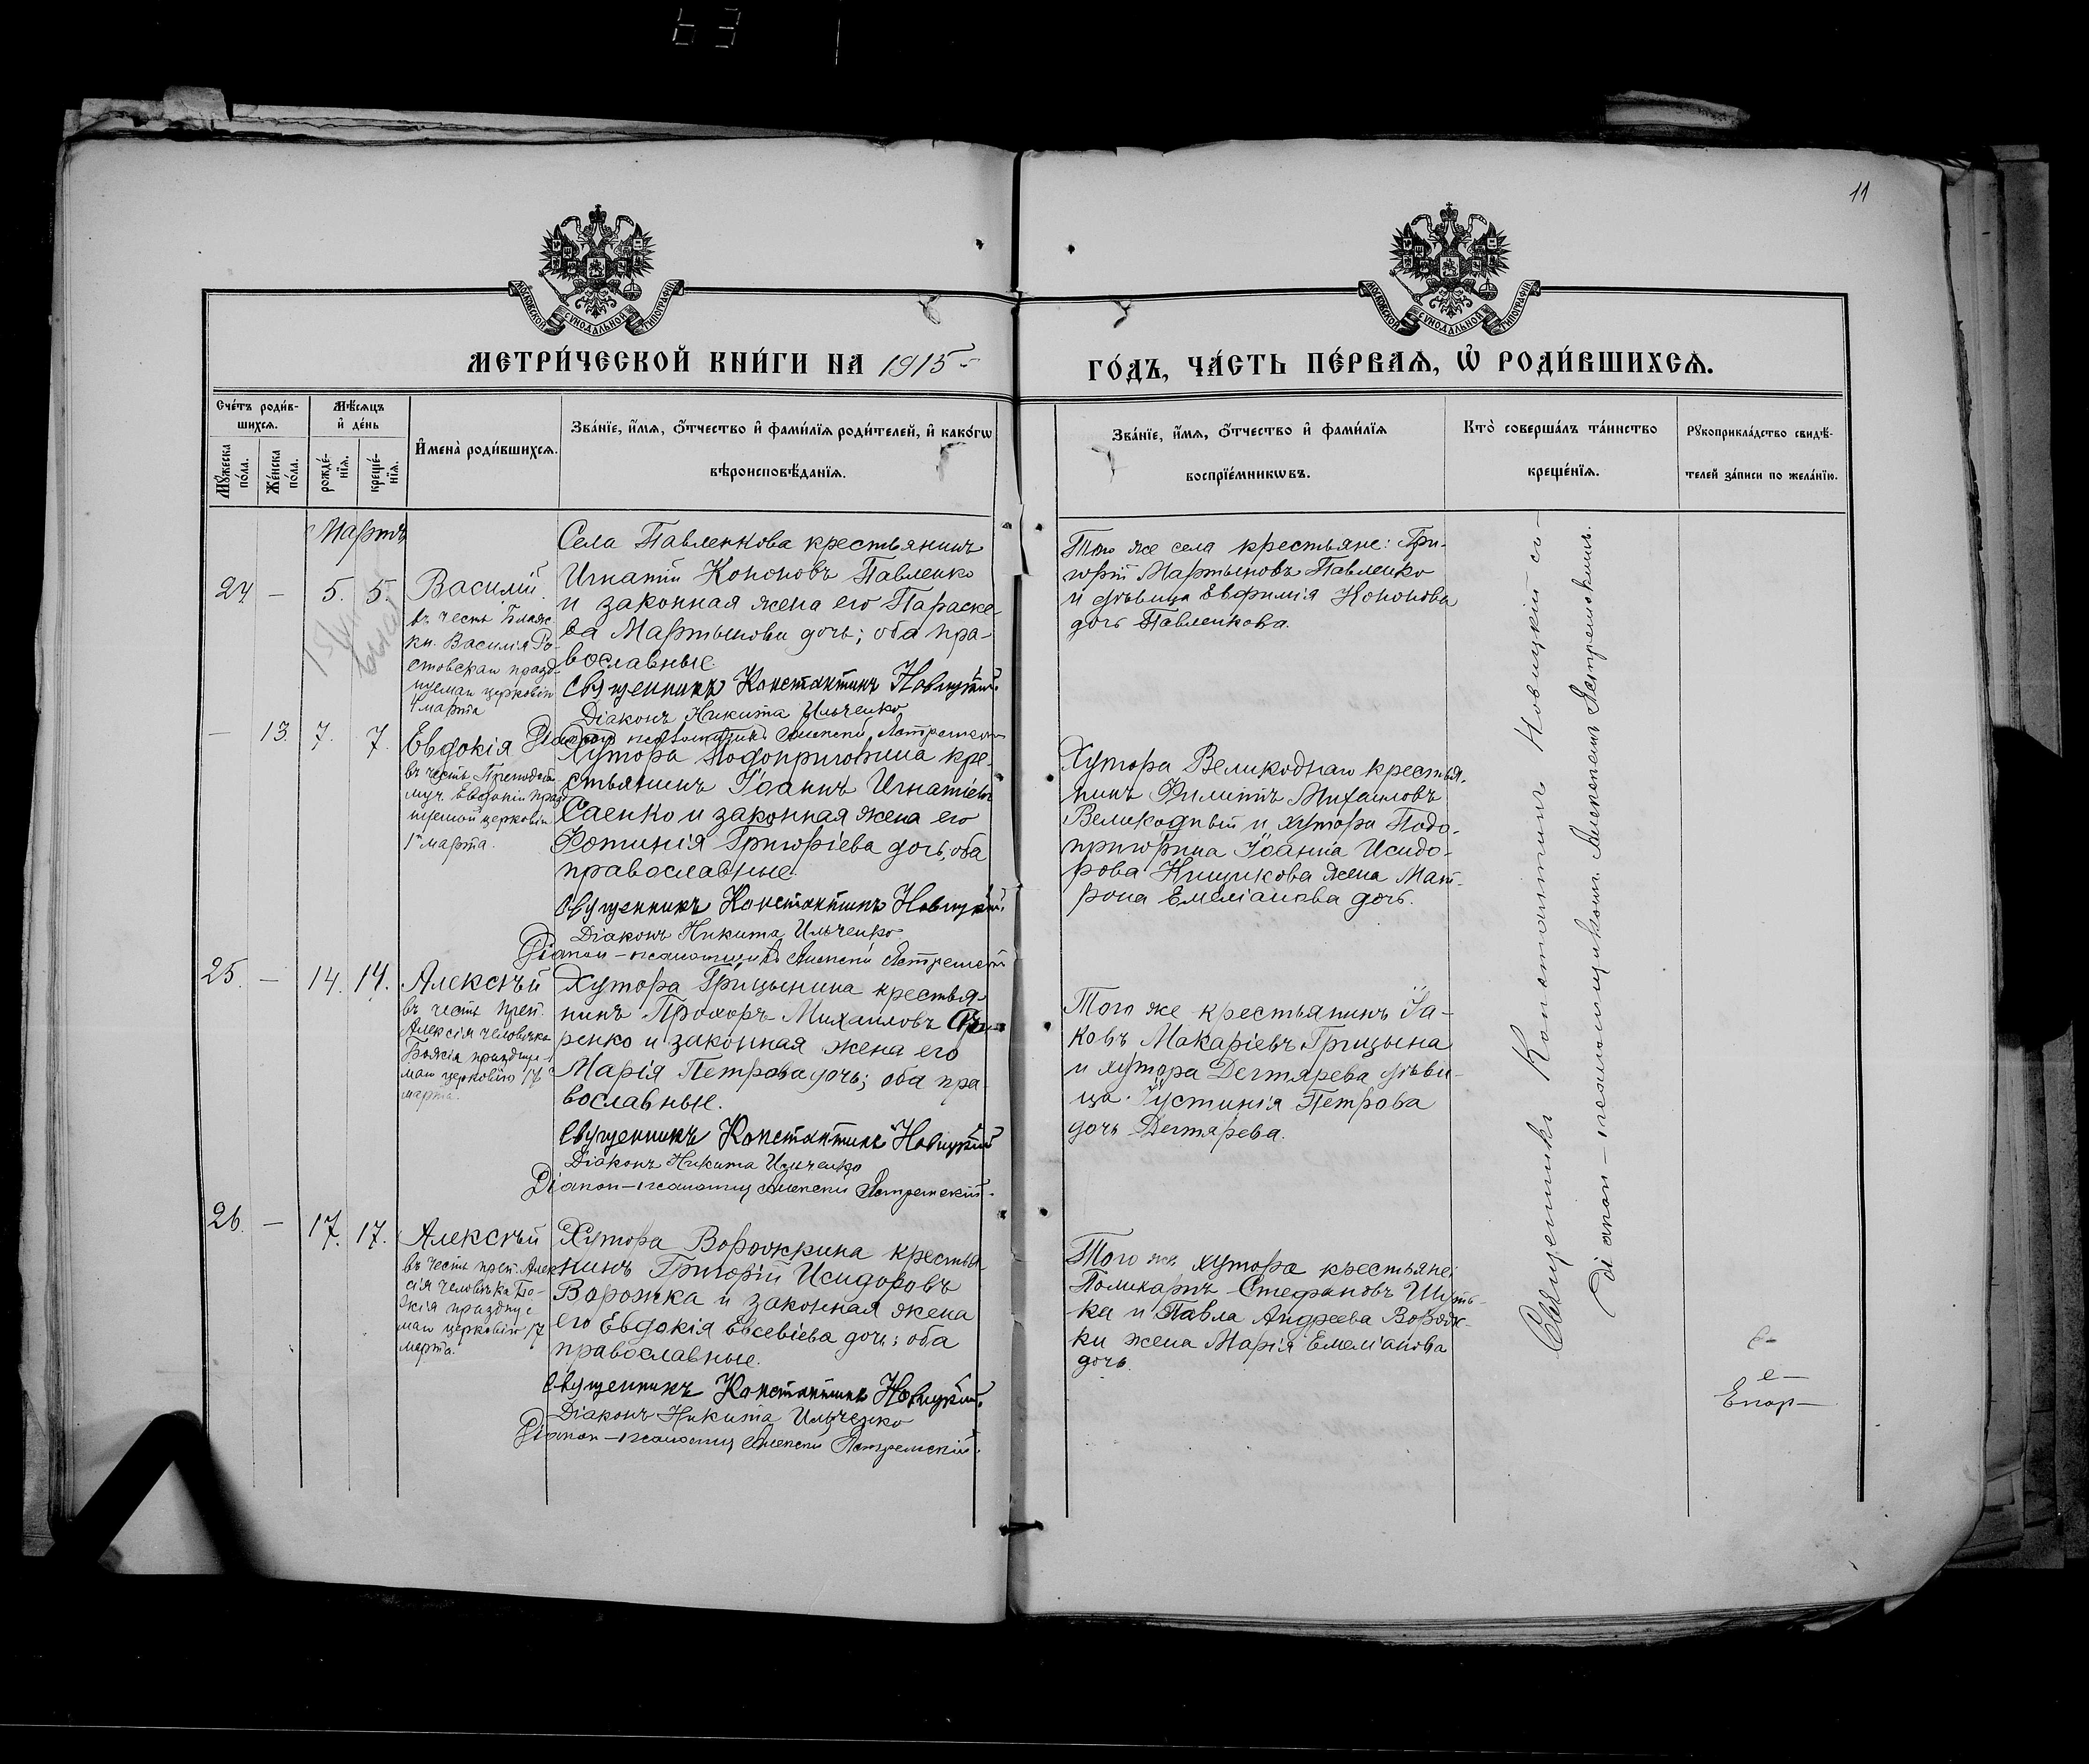 11
МОСКОВСКОЙ СѴНОДАЛЬНОЙ ТИПОГРАФІИ
МОСКОВСКОЙ СѴНОДАЛЬНОЙ ТИПОГРАФІИ
МЕТРИ́ЧЕСКОЙ КНИ́ГИ НА 1915
ГО́ДЪ, ЧА́СТЬ ПЕ́РВАѦ, Ѡ҆ РОДИ́ВШИХСѦ.
Сче́тъ роди́в-
шихсѧ.
Мꙋ́жеска по́ла.
Же́нска по́ла.
Мѣ́сѧцъ
и҆ де́нь
рожде́-
нїѧ.
креще́-
нїѧ.
И҆мена̀ роди́вшихсѧ.
Зва́нїе, и҆́мѧ, ѻ҆́тчество и҆ фами́лїѧ роди́телей, и҆ како́гѡ
вѣроисповѣ́данїѧ.
Зва́нїе, и҆́мѧ, ѻ҆́тчество и҆ фами́лїѧ
воспрїе́мникѡвъ.
Кто̀ соверша́лъ та́инство
креще́нїѧ.
Рꙋкоприкла́дство свидѣ́-
телей за́писи по жела́нїю.
Мартъ
24. — 5. 5.
Василій
въ честь Благов.
кн. Василія Ро-
стовскаго празд-
нуемаго церковію
4 марта
Села Павленкова крестьянинъ
Игнатій Кононовъ Павленко
и законная жена его Параске-
ва Мартынова дочь; оба пра-
вославные.
Священникъ Константинъ Новицкій.
Діаконъ Никита Ильченко
Діакон псаломщикъ Алексій Ястремскій
Того же села крестьяне: Гри-
горій Мартыновъ Павленко
и дѣвица Евфимія Кононова
дочь Павленкова.
— 13. 7. 7.
Евдокія
въ честь Преподобн.
муч. Евдокіи празд
нуемой церковію
1го марта.
Хутора Подопригорина кре-
стьянинъ Іоаннъ Игнатіевъ
Саенко и законная жена его
Фотинія Григоріева дочь, оба
православные
Священникъ Константинъ Новицкій
Діаконъ Никита Ильченко
Діакон-псаломщикъ Алексій Ястремскій
Хутора Великоднаго крестья-
нинъ Филиппъ Михаиловъ
Великодный и хутора Подо-
пригорина Іоанна Исидо-
рова Кищикова жена Мат-
рона Емеліанова дочь.
25. — 14. 14.
Алексѣй
въ честь преп.
Алексія человѣка
Божія праздну-
маго церковію 17
марта.
Хутора Грицынина крестья-
нинъ Прохоръ Михаиловъ
ренко и законная жена его
Марія Петрова дочь; оба пра-
вославные.
Священникъ Константинъ Новицкій
Діаконъ Никита Ильченко
Діакон-псаломщ Алексій Ястремскій.
Того же крестьянинъ Іа-
ковъ Макаріевъ Грицына
и хутора Дегтярева дѣви-
ца Іустинія Петрова
дочь Дегтярева.
26. — 17. 17.
Алексѣй
въ честь преп. Алек
сія человѣка Бо-
жія праздну е
маго церковію 17
марта.
Хутора Ворожкина крестья-
нинъ Григорій Исидоровъ
Ворожка и законная жена
его Евдокія Евсевіева дочь; оба
православные.
Священникъ Константинъ Новицкій.
Діаконъ Никита Ильченко
Діакон-псаломщ Алексій Ястремскій.
Того же хутора крестьяне:
Поликарпъ Стефановъ Шуть-
ка и Павла Андреева Ворож-
ки жена Марія Емеліанова
дочь.
Священникъ Константинъ Новицкій съ
Діакон-псаломщикомъ Алексѣемъ Ястремскимъ.